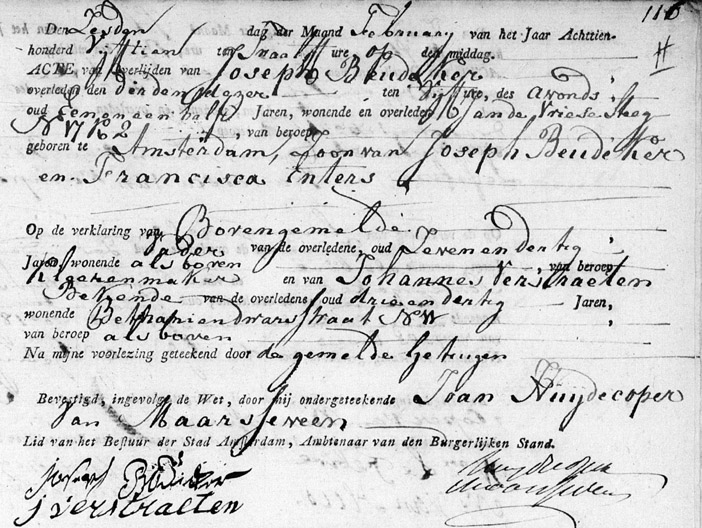 116
Den Zesden dag der Maand February van het Jaar Achttien-
honderd Vijftien ten ure, op den middag.
H
ACTE van overlijden van Joseph Beudeker
overleden den derden dezer ten Vijf ure, des avonds,
oud Een een half Jaren, wonende en overleden Jande Vriese Steeg
N 1762, van beroep
geboren te Amsterdam, Zoon van Joseph Beudeker
en Francisca Inters
Op de verklaring van Bovengemelde
Vader van de overledene, oud Zevenendertig,
Jaren, wonende als boven, van beroep
en van Johannes Verstraeten
Bekende van de overledene oud drieendertig Jaren,
wonende Bethaniendwarsstraat N
van beroep als boven
Na mijne voorlezing geteekend door de gemelde Getuigen
Bevestigd, ingevolge de Wet, door mij ondergeteekende Joan Huydecoper
van Maarsseveen
Lid van het Bestuur der Stad Amsterdam, Ambtenaar van den Burgerlijken Stand.
Joseph
J verstraeten